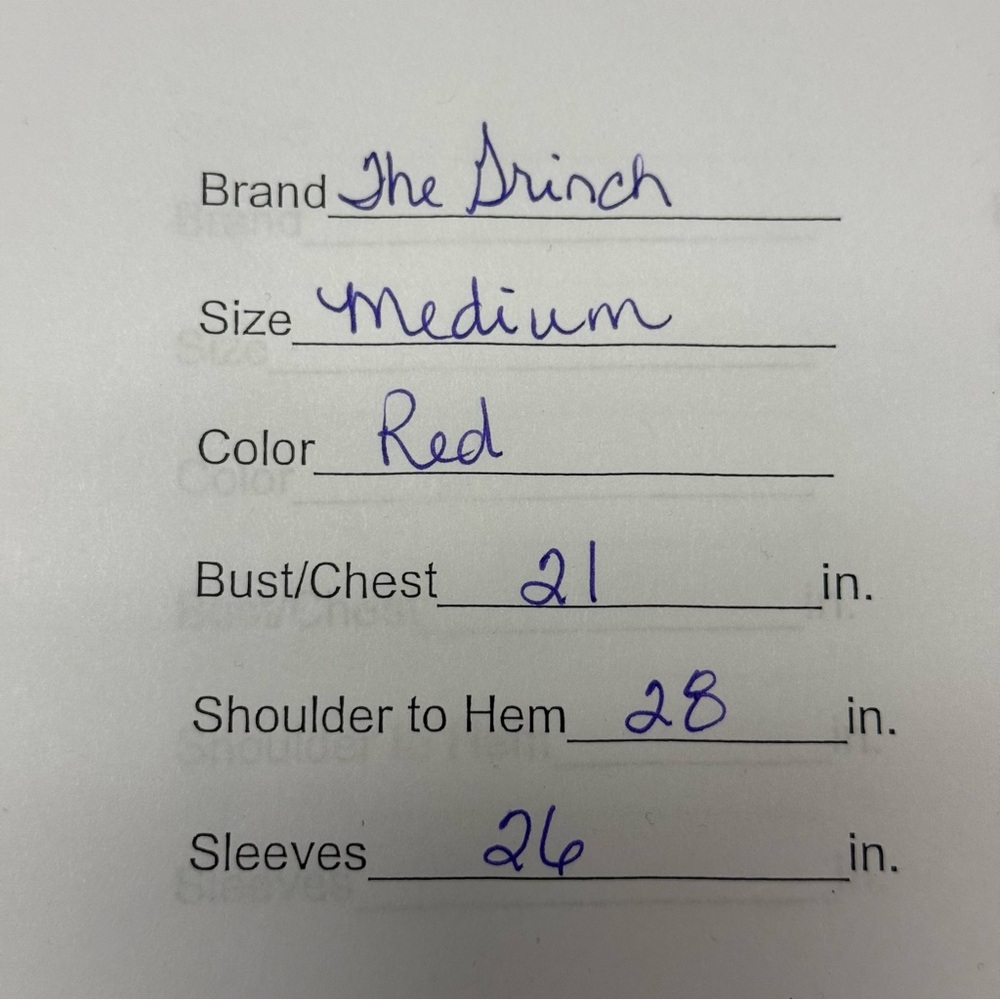 Brand The Grinch
Size Medium
Color Red
Bust/Chest 21 in.
Shoulder to Hem 28 in.
Sleeves 26 in.